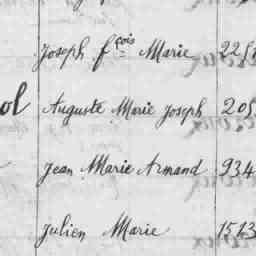 Joseph fçois Marie 225
ol Auguste Marie Joseph 205
Jean Marie Armand 934
Julien Marie 1513